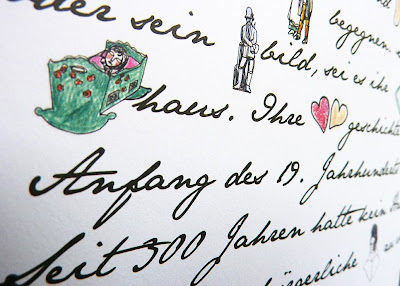 oder sein bild, sei es ihr
begegnen.
haus. Ihre geschichte
Anfang des 19. Jahrhunderts
Seit 500 Jahren hatte kein
bürgerliche